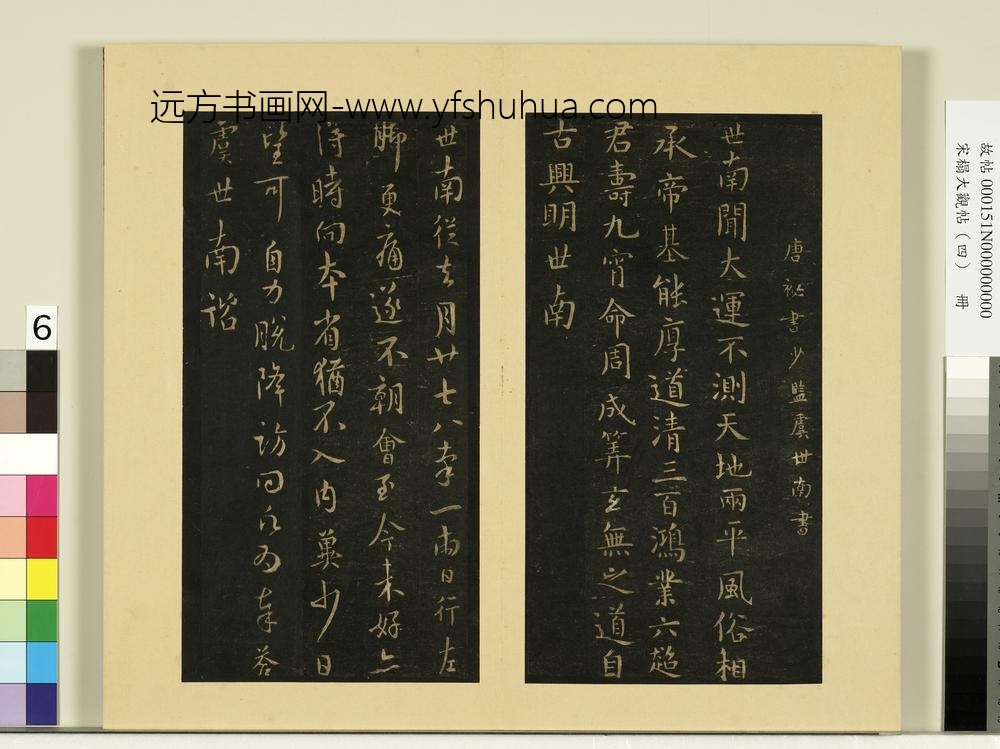 远方书画网-www.yfshuhua.com
唐祕書少監虞世南書
世南聞大運不測天地兩平風俗相
承帝基能厚道清三百鴻業六超
君壽九霄命周成筭玄無之道自
古興明世南
世南從去月廿七八率一兩日行左
脚更痛遂不朝會至今未好亦
得時向本省猶不入內冀少日
望可自力脫降訪問願為奉答
虞世南諮
故帖000151N000000000
宋榻大觀帖（四） 冊
6